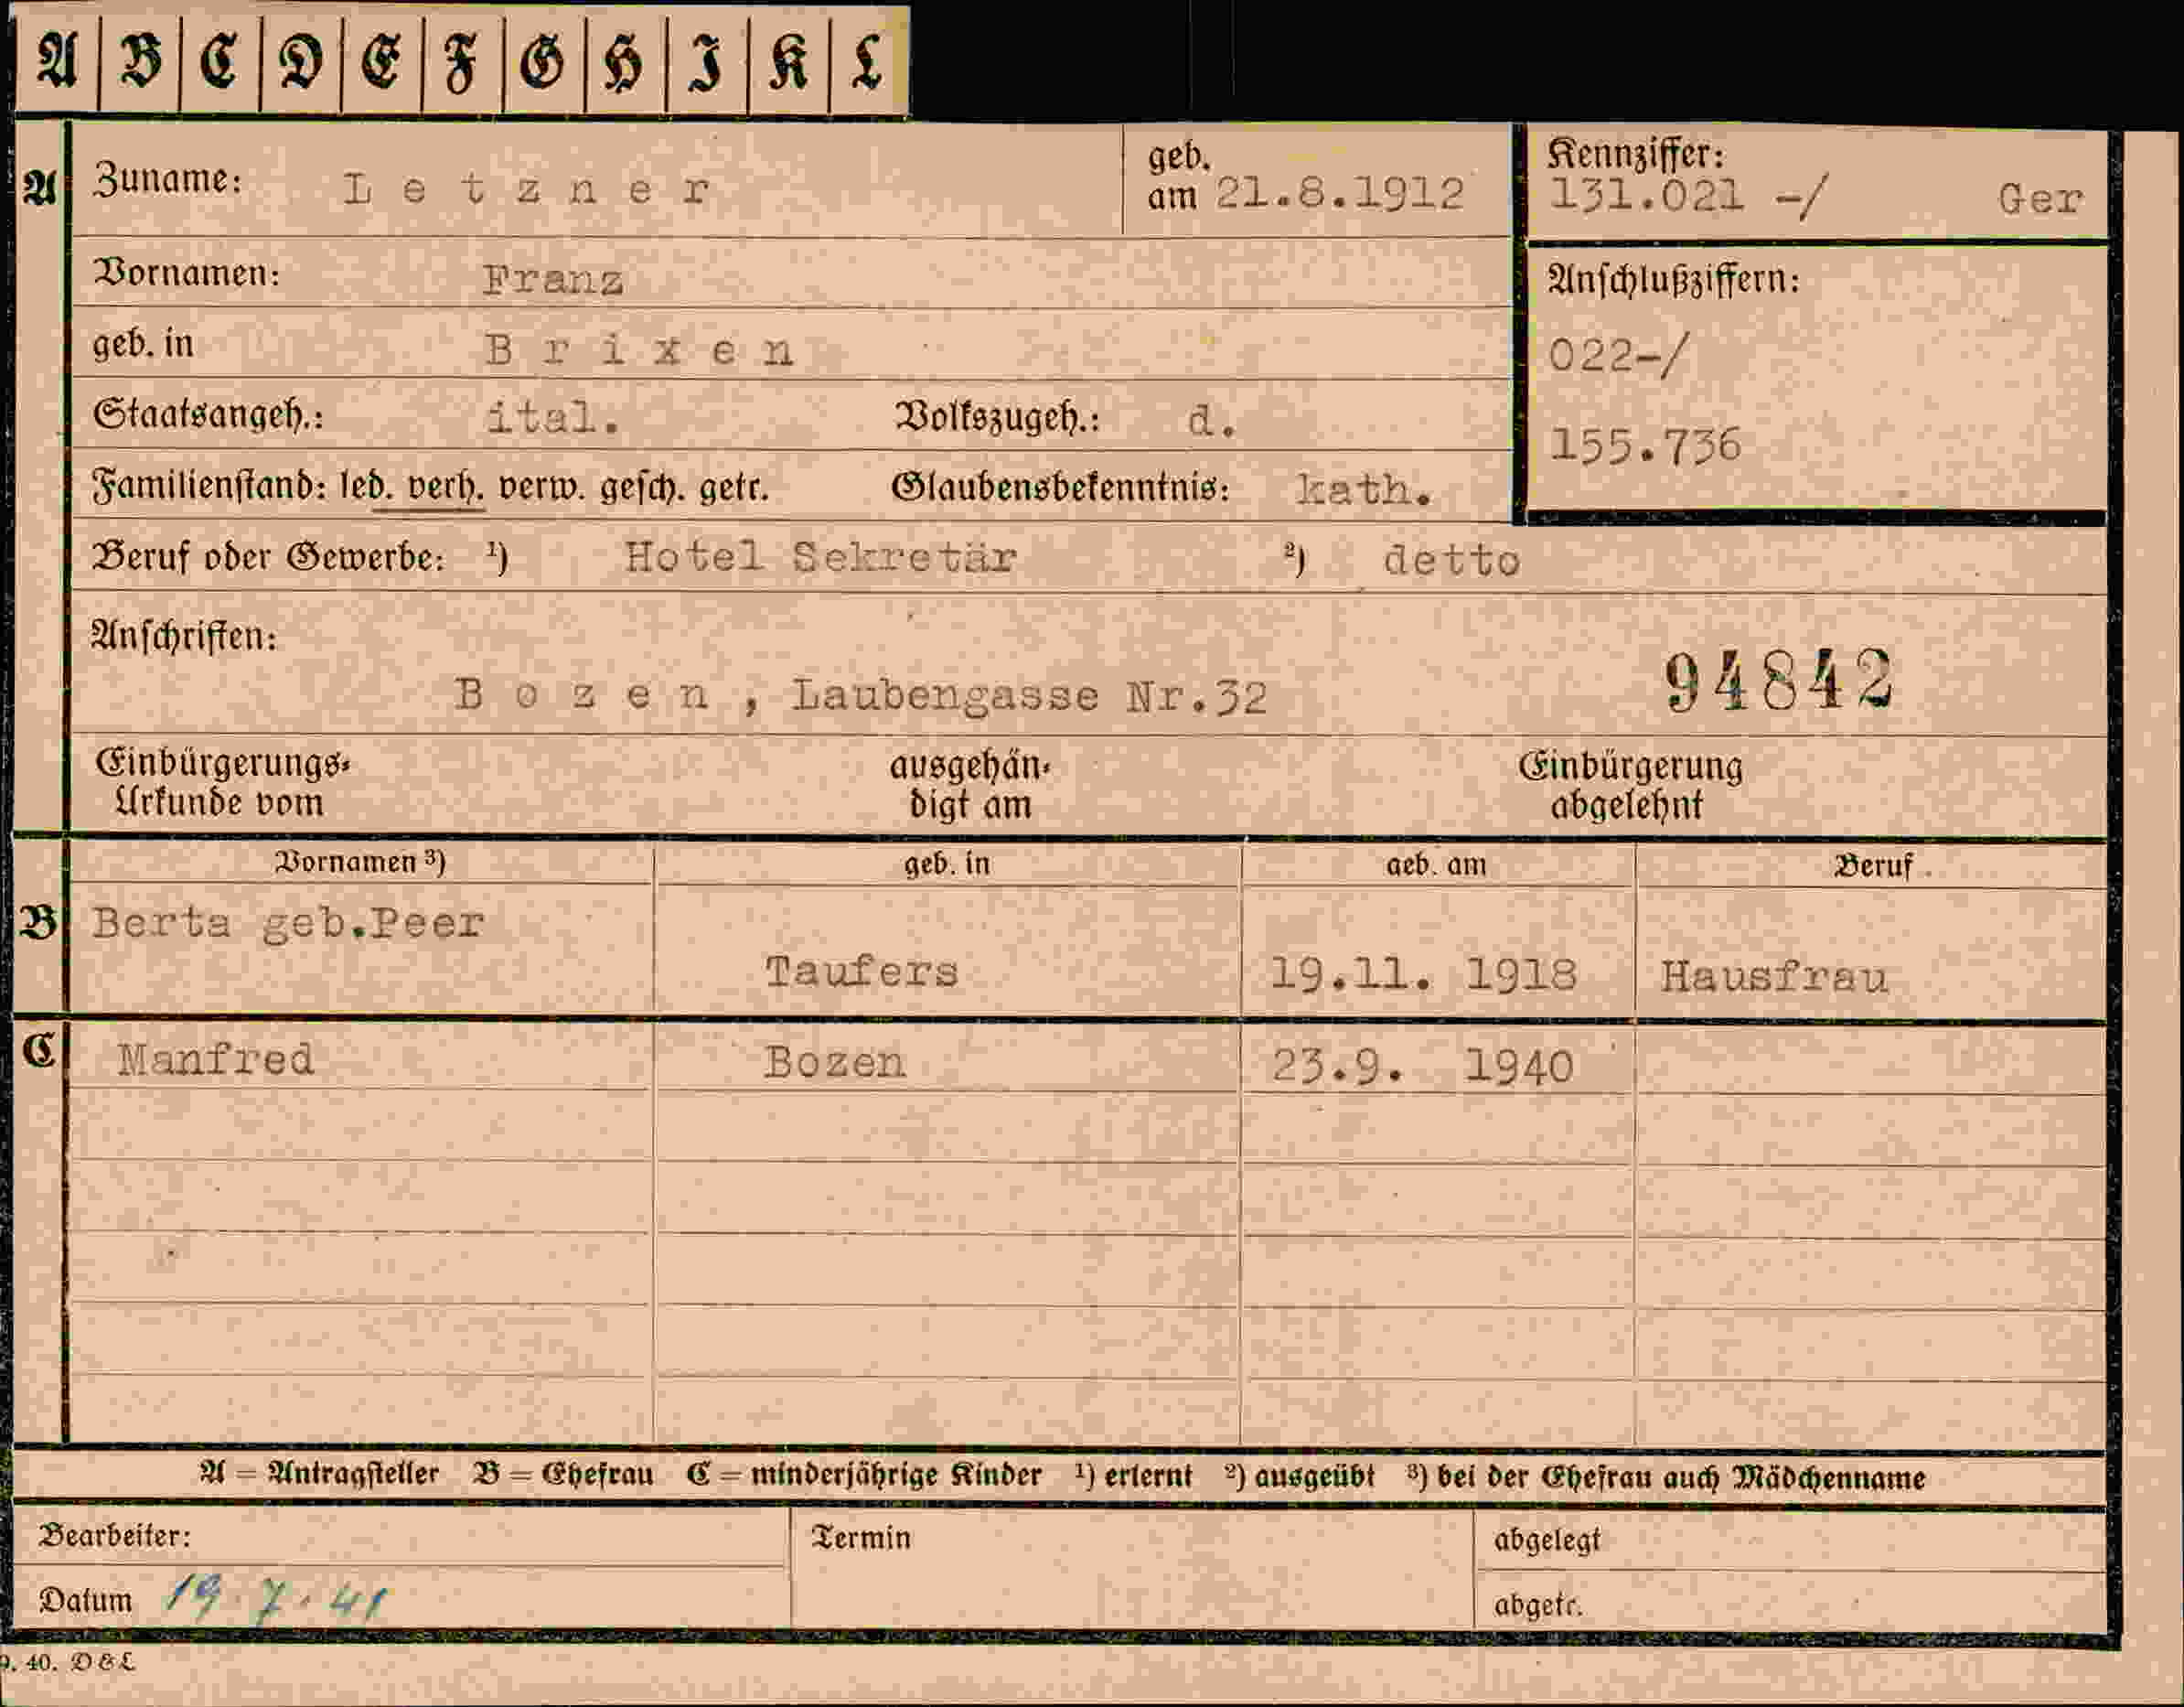 A B C D E F G H I K L
A Zuname: Letzner geb. am 21.8.1912 Kennziffer: 131.021 -/ Ger
Vornamen: Franz Anschlußziffern:
geb. in Brixen 022-/
Staatsangeh.: ital. Volkszugeh.: d. 155.736
Familienstand: led. verh. verw. gesch. getr. Glaubensbekenntnis: kath.
Beruf oder Gewerbe: ¹) Hotel Sekretär ²) detto
Anschriften:
Bozen, Laubengasse Nr.32 94842
Einbürgerungs- ausgehän- Einbürgerung
Urkunde vom digt am abgelehnt
Vornamen ³) geb. in geb. am Beruf
B Berta geb.Peer
Taufers 19.11. 1918 Hausfrau
C Manfred Bozen 23.9. 1940
A = Antragsteller B = Ehefrau C = minderjährige Kinder ¹) erlernt ²) ausgeübt ³) bei der Ehefrau auch Mädchenname
Bearbeiter: Termin abgelegt
Datum 19.7.41 abgetr.
9. 40. D & L